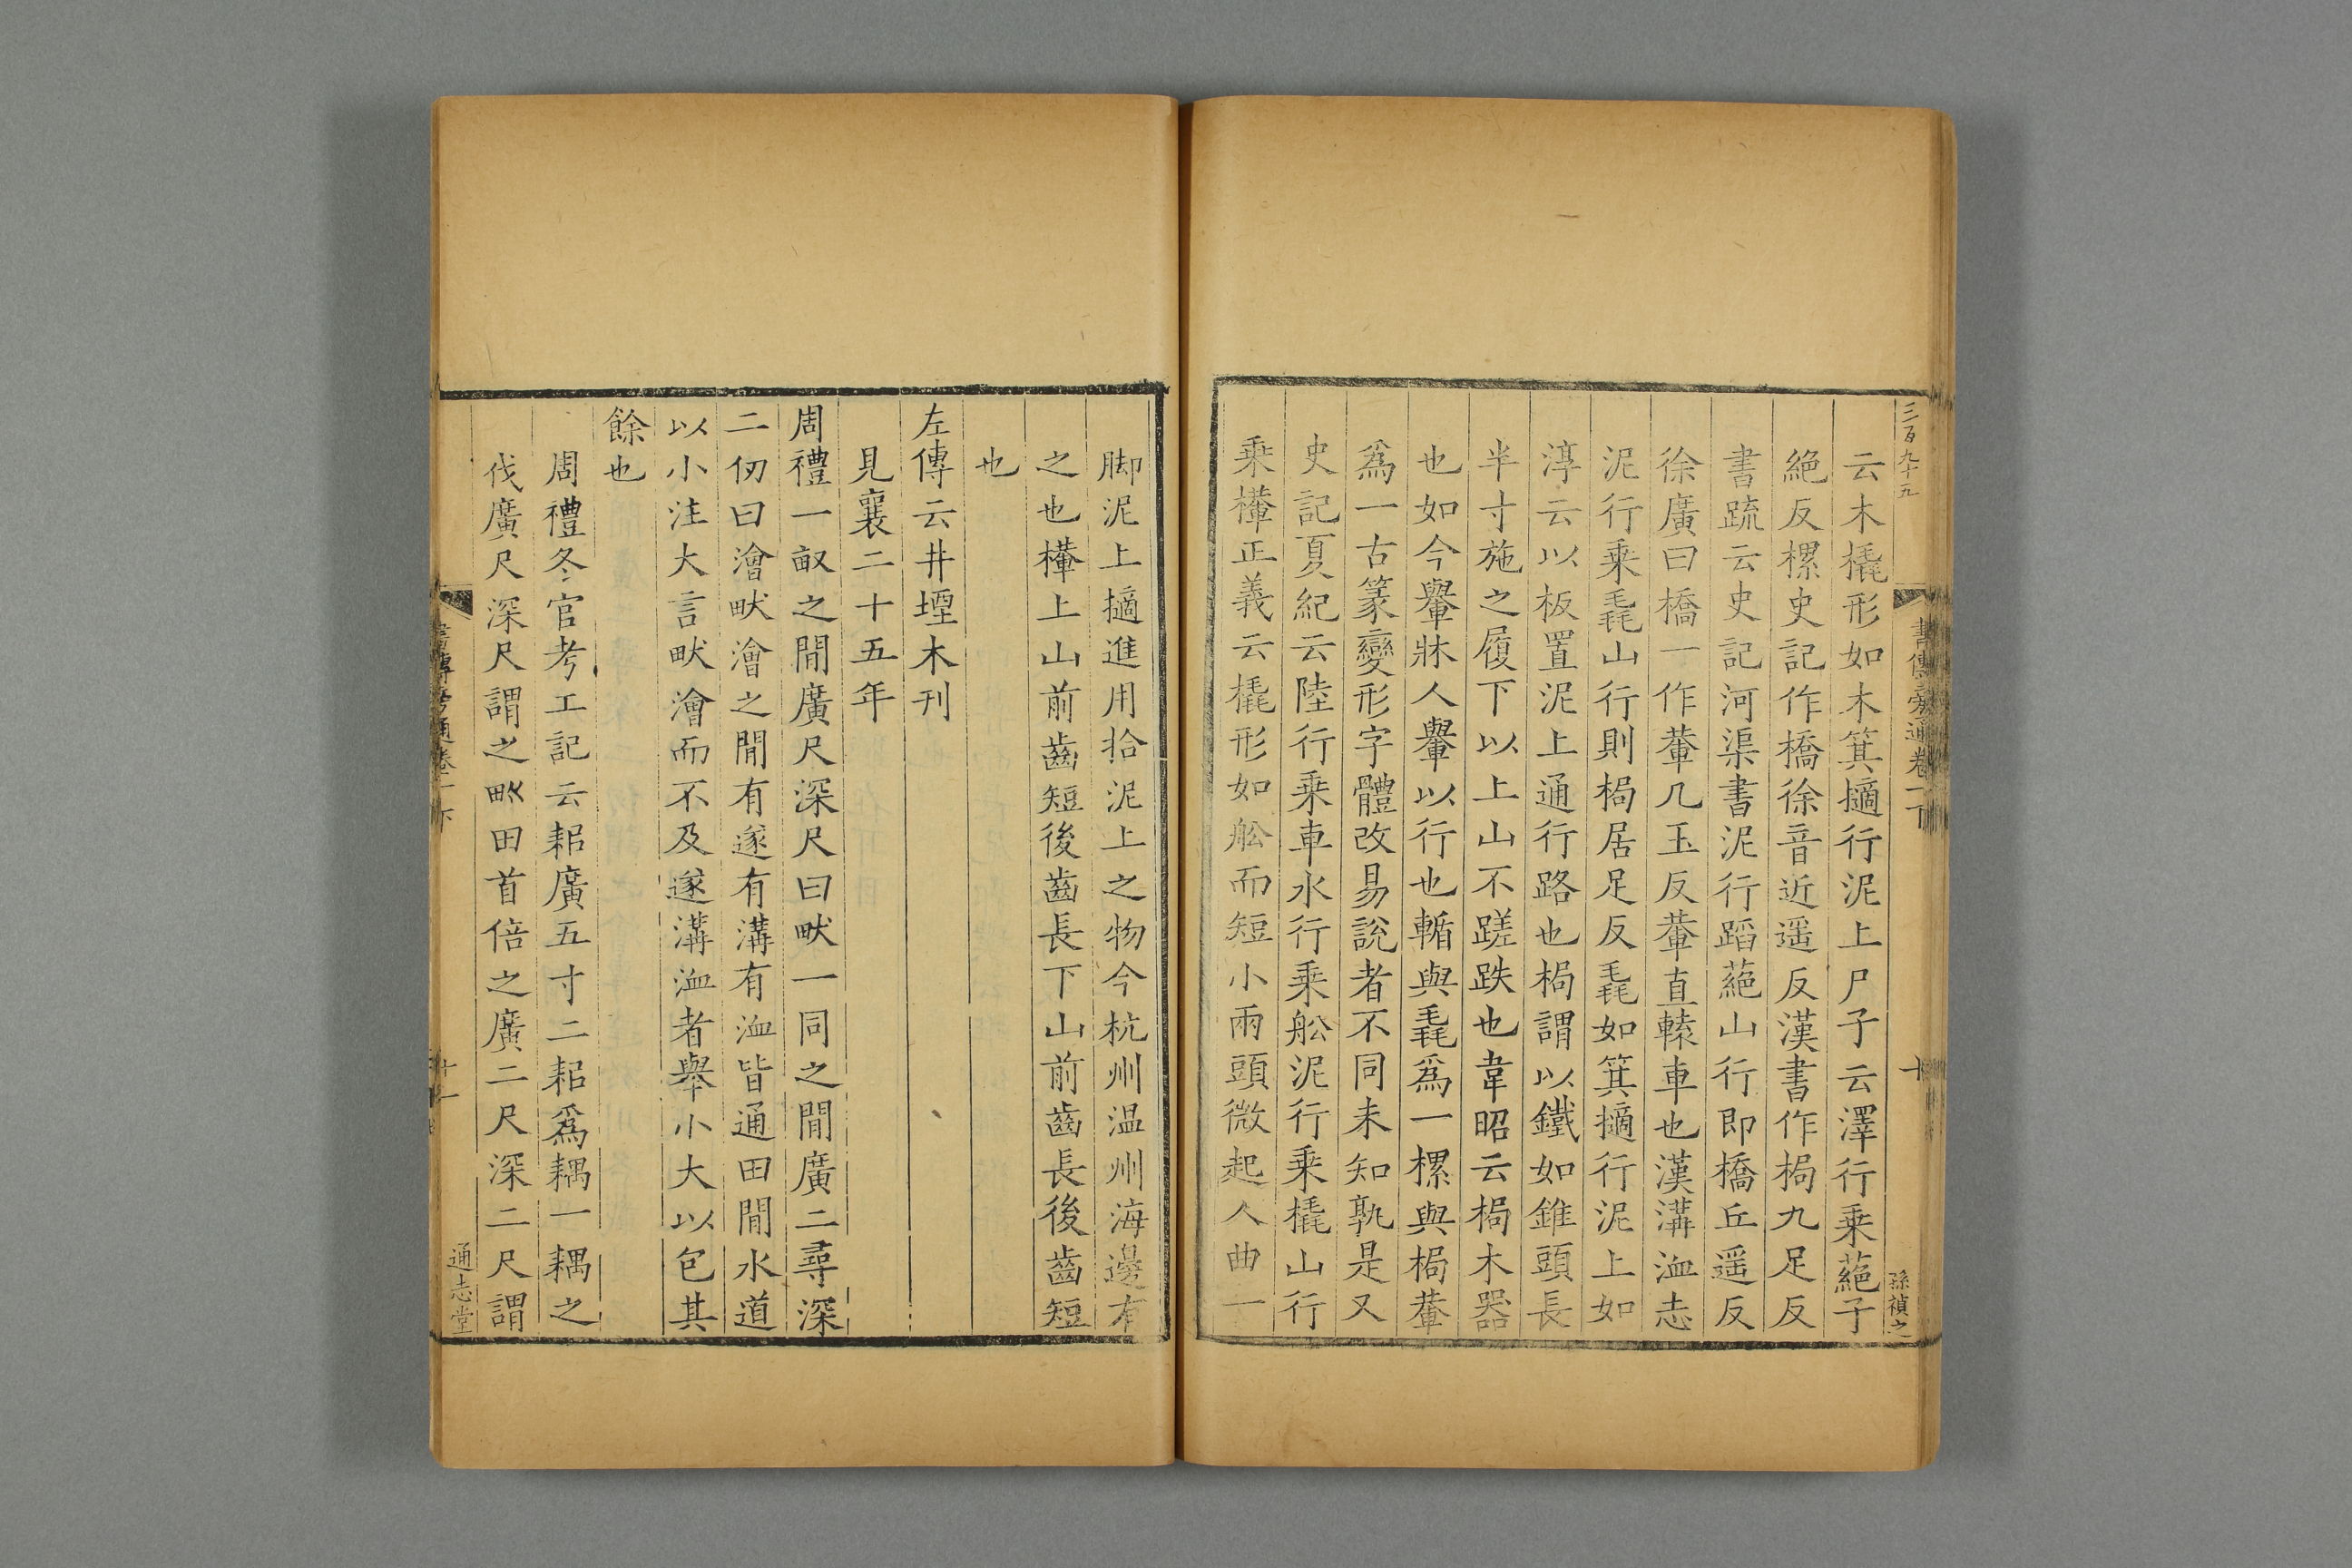 三百九十五
書傳旁通卷一下
十
孫禎之
云木橇形如木箕擿行泥上尸子云澤行乗蕝子
絕反樏史記作橋徐音近遥反漢書作梮九足反
書䟽云史記河渠書泥行蹈蕝山行即橋丘遥反
徐廣曰橋一作輂几玉反輂直轅車也漢溝洫志
泥行乗毳山行則梮居足反毳如箕擿行泥上如
淳云以板置泥上通行路也梮謂以鐵如錐頭長
半寸施之履下以上山不蹉跌也韋昭云梮木器
也如今轝牀人轝以行也輴與毳爲一樏與梮輂
爲一古篆變形字體改易說者不同未知孰是又
史記夏紀云陸行乗車水行乗舩泥行乗橇山行
乗檋正義云橇形如舩而短小兩頭微起人曲一
脚泥上擿進用拾泥上之物今杭州温州海邊有
之也檋上山前齒短後齒長下山前齒長後齒短
也
左傳云井堙木刊
見襄二十五年
周禮一畝之閒廣尺深尺曰畎一同之閒廣二尋深
二仞曰澮畎澮之閒有遂有溝有洫皆通田閒水道
以小注大言畎澮而不及遂溝洫者舉小大以包其
餘也
周禮冬官考工記云耜廣五寸二耜爲耦一耦之
伐廣尺深尺謂之畎田首倍之廣二尺深二尺謂
書傳旁通卷一下
十一
通志堂